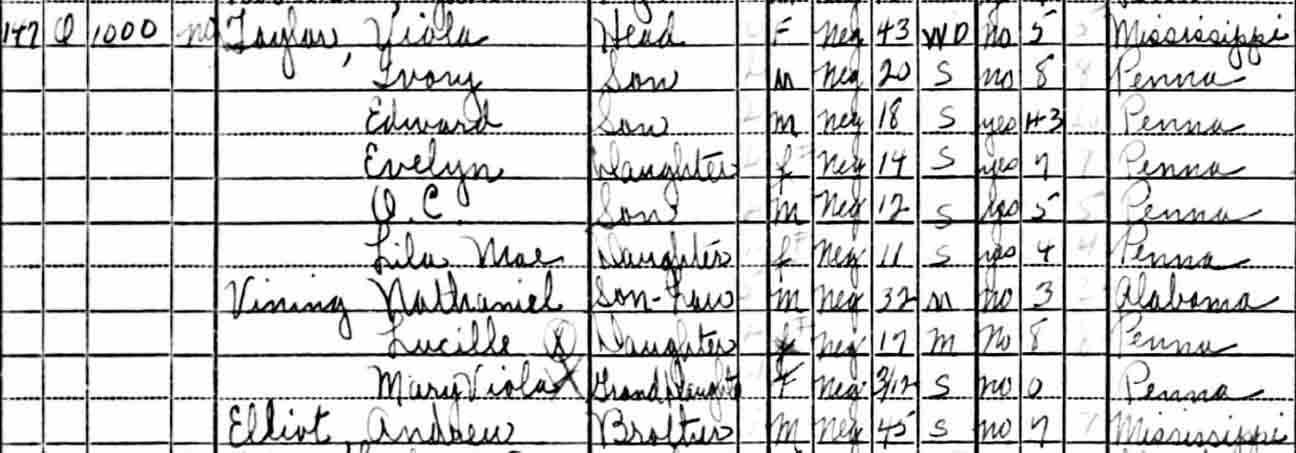 147 O 1000 no Taylor, Viola Head F Neg 43 WD no 5 Mississippi
Ivory Son m Neg 20 S no 8 Penna
Edward Son m Neg 18 S yes H3 Penna
Evelyn Daughter f Neg 14 S yes 7 Penna
O. C. Son m Neg 12 S yes 5 Penna
Lila Mae Daughter f Neg 11 S yes 4 Penna
Vining Nathaniel Son-Law m Neg 32 m no 3 Alabama
Lucille X Daughter f Neg 17 m No 8 Penna
Mary Viola X Grand Daught F Neg 3/12 S no 0 Penna
Elliot, Andrew Brother M Neg 45 S no 7 Mississippi